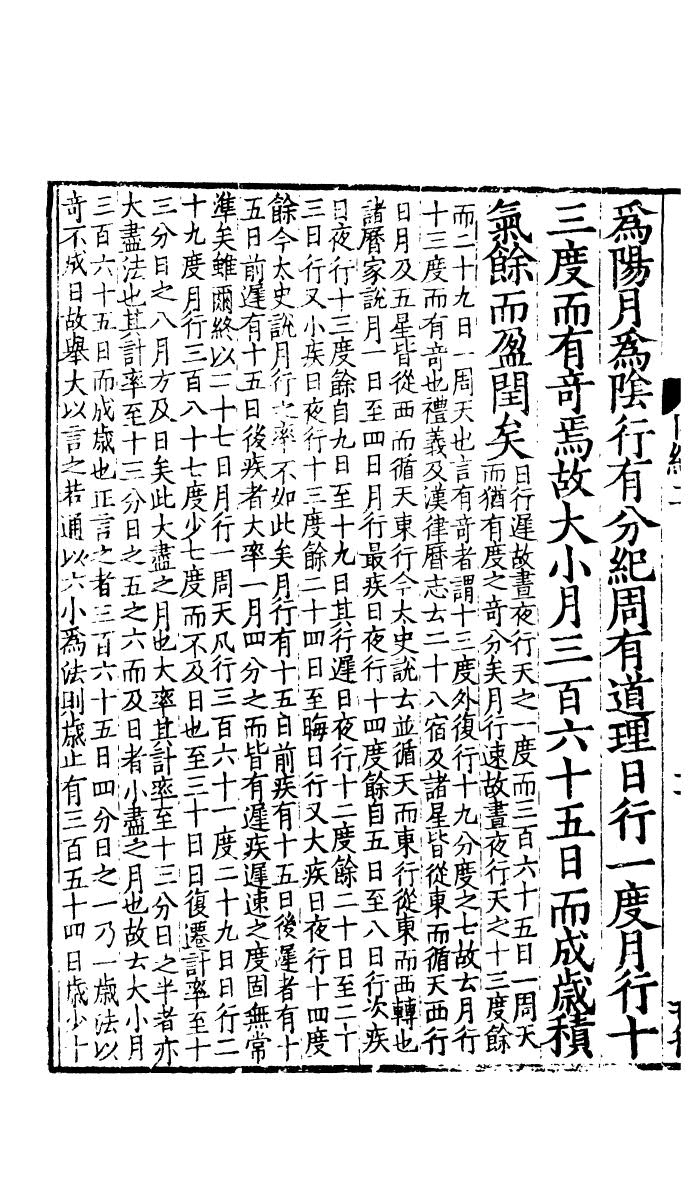 爲陽月爲隂行有分紀周有道理日行一度月行十
三度而有奇焉故大小月三百六十五日而成歳積
氣餘而盈閏矣
日行遲故晝夜行天之一度而三百六十五日一周天
而猶有度之奇分矣月行速故晝夜行天之十三度餘
而二十九日一周天也言有奇者謂十三度外復行十九分度之七故云月行
十三度而有奇也禮義及漢律曆志云二十八宿及諸星皆從東而循天西行
日月及五星皆從西而循天東行今太史說云並循天而東行從東而西轉也
諸曆家說月一日至四日月行最疾日夜行十四度餘自五日至八日行次疾
日夜行十三度餘自九日至十九日其行遲日夜行十二度餘二十日至二十
三日行又小疾日夜行十三度餘二十四日至晦日行又大疾日夜行十四度
餘今太史說月行之率不如此矣月行有十五日前疾有十五日後遲者有十
五日前遲有十五日後疾者大率一月四分之而皆有遲疾遲速之度固無常
準矣雖爾終以二十七日月行一周天凡行三百六十一度二十九日日行二
十九度月行三百八十七度少七度而不及日也至三十日日復遷計率至十
三分日之八月方及日矣此大盡之月也大率其計率至十三分日之半者亦
大盡法也其計率至十三分日之五之六而及日者小盡之月也故云大小月
三百六十五日而成歳也正言之者三百六十五日四分日之一乃一歳法以
奇不成日故舉大以言之若通以六小爲法則歳止有三百五十四日歳少十